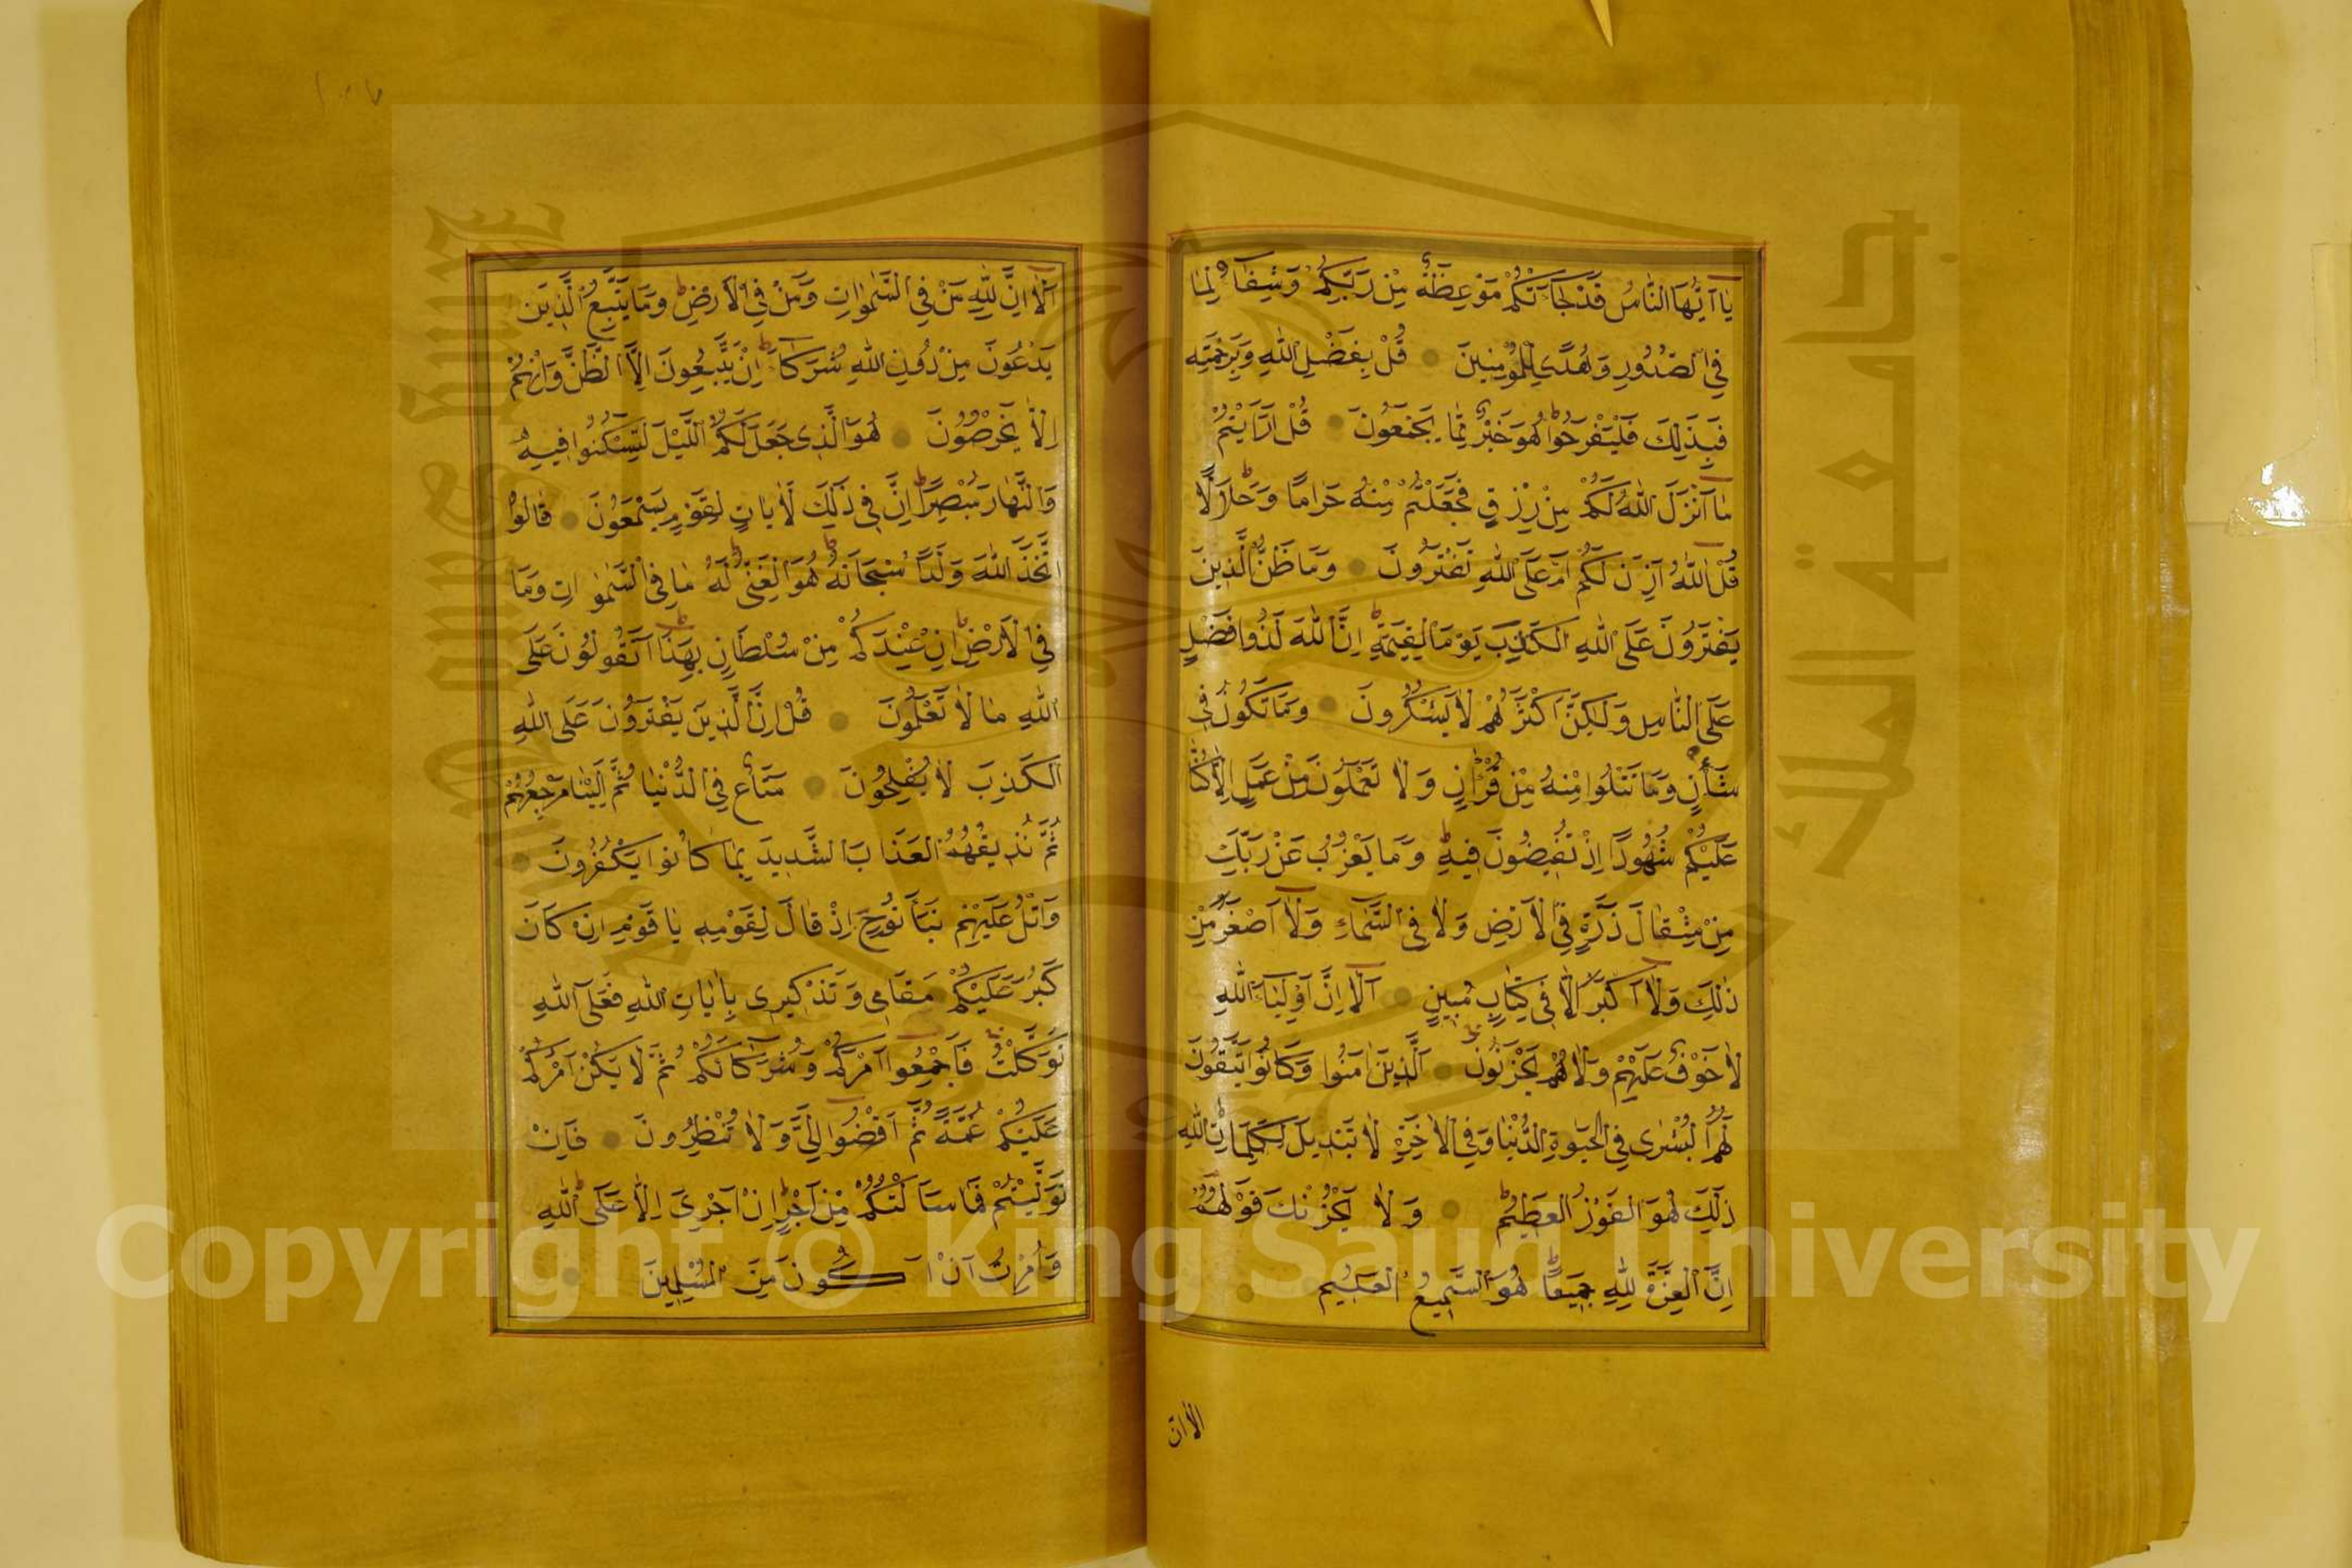 يَا آيُّهَا النَّاسُ قَدْ جَآءَتْكُمْ مَوْعِظَةٌ مِنْ رَبِّكُمْ وَشِفَآءٌ لِمَا
فِي الصُّدُورِ وَهُدًى لِلْمُؤْمِنِينَ قُلْ بِفَضْلِ اللهِ وَبِرَحْمَتِهِ
فَبِذَلِكَ فَلْيَفْرَحُوا هُوَ خَيْرٌ مِمَّا يَجْمَعُونَ قُلْ اَرَاَيْتُمْ
مَا آنْزَلَ اللهُ لَكُمْ مِنْ رِزْقٍ فَجَعَلْتُمْ مِنْهُ حَرَامًا وَحَلَالًا
قُلْ اللهُ اَذِنَ لَكُمْ اَمْ عَلَى اللهِ تَفْتَرُونَ وَمَا ظَنُّ الَّذِينَ
يَفْتَرُونَ عَلَى اللهِ الْكَذِبَ يَوْمَ الْقِيٰمَةِ اِنَّ اللهَ لَذُوا فَضْلٍ
عَلَى النَّاسِ وَلَكِنَّ اَكْثَرَهُمْ لَا يَشْكُرُونَ وَمَا تَكُونُ فِي
شَأْنٍ وَمَا تَتْلُوا مِنْهُ مِنْ قُرْاٰنٍ وَلَا تَعْمَلُونَ مِنْ عَمَلٍ اِلَّا كُنَّا
عَلَيْكُمْ شُهُودًا اِذْ تُفِيضُونَ فِيهِ وَمَا يَعْزُبُ عَنْ رَبِّكَ
مِنْ مِثْقَالَ ذَرَّةٍ فِي الْاَرْضِ وَلَا فِي السَّمَآءِ وَلَا اَصْغَرَ مِنْ
ذٰلِكَ وَلَا آكْبَرَ اِلَّا فِي كِتَابٍ مُبِينٍ آلَا اِنَّ اَوْلِيَآءَ اللهِ
لَا خَوْفٌ عَلَيْهِمْ وَلَا هُمْ يَحْزَنُونَ اَلَّذِينَ اٰمَنُوا وَكَانُوا يَتَّقُونَ
لَهُمُ الْبُشْرٰى فِي الْحَيٰوةِ الدُّنْيَا وَفِي الْاٰخِرَةِ لَا تَبْدِيلَ لِكَلِمَاتِ اللهِ
ذٰلِكَ هُوَ الْفَوْزُ الْعَظِيمُ وَلَا يَحْزُنْكَ قَوْلُهُمْ
اِنَّ الْعِزَّةَ لِلهِ جَمِيعًا هُوَ السَّمِيعُ الْعَلِيمُ
الاان
آلَا اِنَّ لِلهِ مَنْ فِي السَّمٰوَاتِ وَمَنْ فِي الْاَرْضِ وَمَا يَتَّبِعُ الَّذِينَ
يَدْعُونَ مِنْ دُونِ اللهِ شُرَكَآءَ اِنْ يَتَّبِعُونَ اِلَّا الظَّنَّ وَاِنْ هُمْ
اِلَّا يَخْرُصُونَ هُوَ الَّذِي جَعَلَ لَكُمُ اللَّيْلَ لِتَسْكُنُوا فِيهِ
وَالنَّهَارَ مُبْصِرًا اِنَّ فِي ذٰلِكَ لَاٰيَاتٍ لِقَوْمٍ يَسْمَعُونَ قَالُوا
اتَّخَذَ اللهُ وَلَدًا سُبْحَانَهُ هُوَ الْغَنِيُّ لَهُ مَا فِي السَّمٰوَاتِ وَمَا
فِي الْاَرْضِ اِنْ عِنْدَكُمْ مِنْ سُلْطَانٍ بِهَذَا اَتَقُولُونَ عَلَى
اللهِ مَا لَا تَعْلَمُونَ قُلْ اِنَّ الَّذِينَ يَفْتَرُونَ عَلَى اللهِ
الْكَذِبَ لَا يُفْلِحُونَ مَتَاعٌ فِي الدُّنْيَا ثُمَّ اِلَيْنَا مَرْجِعُهُمْ
ثُمَّ نُذِيقُهُمُ الْعَذَابَ الشَّدِيدَ بِمَا كَانُوا يَكْفُرُونَ
وَاتْلُ عَلَيْهِمْ نَبَأَ نُوحٍ اِذْ قَالَ لِقَوْمِهِ يَا قَوْمِ اِنْ كَانَ
كَبُرَ عَلَيْكُمْ مَقَامِي وَتَذْكِيرِي بِاٰيَاتِ اللهِ فَعَلَى اللهِ
تَوَكَّلْتُ فَاَجْمِعُوا آمْرَكُمْ وَشُرَكَآءَكُمْ ثُمَّ لَا يَكُنْ اَمْرُكُمْ
عَلَيْكُمْ غُمَّةً ثُمَّ اقْضُوا اِلَيَّ وَلَا تُنْظِرُونَ فَاِنْ
تَوَلَّيْتُمْ فَمَا سَاَلْتُكُمْ مِنْ اَجْرٍ اِنْ اَجْرِيَ اِلَّا عَلَى اللهِ
وَاُمِرْتُ اَنْ اَكُونَ مِنَ الْمُسْلِمِينَ
Copyright © King Saud University
جامعة الملك